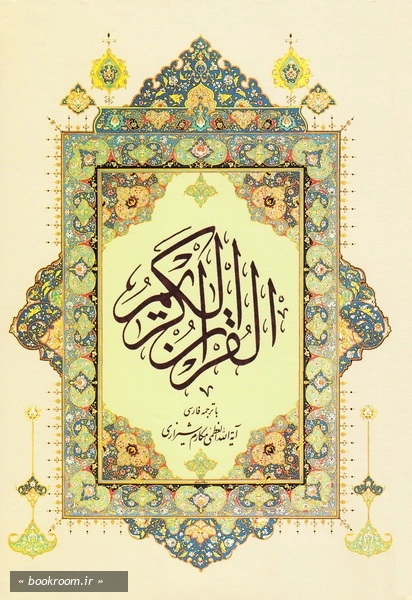 القرآن الکریم
با ترجمه فارسی
آیة الله العظمی مکارم شیرازی
« bookroom.ir »